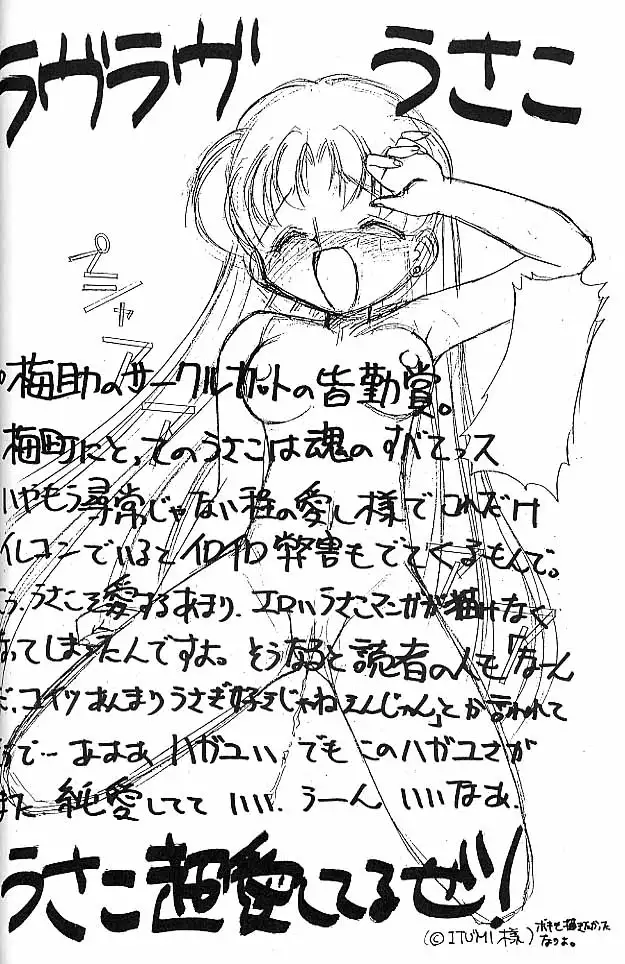 ラヴラヴ うさこ
ペシャアー
梅助のサークルカットの皆勤賞。
梅町にとってのうさこは魂のすべてっス
いやもう尋常じゃない程の愛し様でこれだけ
でいるとイロイロ弊害もでてくるもんで。
うさこを愛するあまり、エロいうさこマンガが描けなく
なってしまったんですよ。そうなると読者の人も「なーん
だ、コイツあんまりうさぎ好きじゃねえんじゃん」とか言われて
…あああ、ハガユい でもこのハガユさが
また 純愛してて いいい。うーん いいなあ。
うさこ超愛してるぜ!
(©ITUMI様)